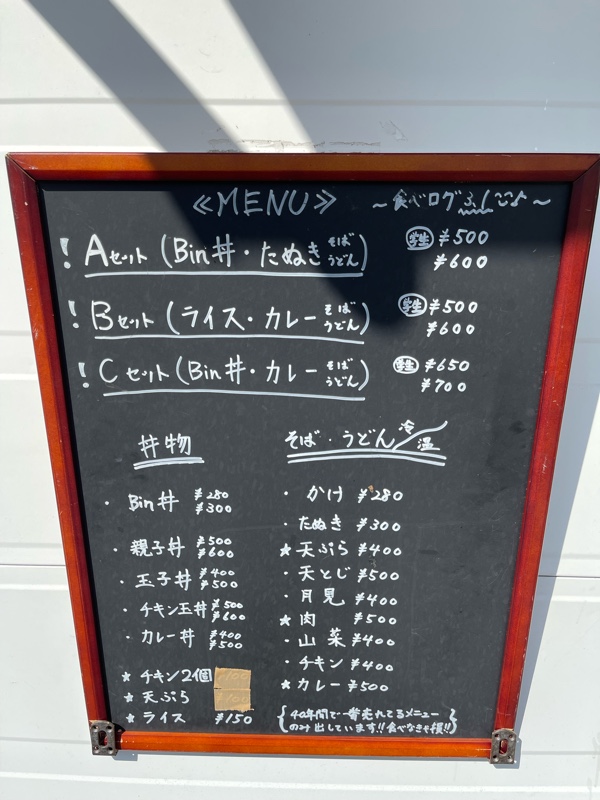 ≪MENU≫ ～食べログふしごよ～
! Aセット (Bin丼・たぬき そば うどん) 学生 ¥500
¥600
! Bセット (ライス・カレー そば うどん) 学生 ¥500
¥600
! Cセット (Bin丼・カレー そば うどん) 学生 ¥650
¥700
丼物
・Bin丼 ¥280 ¥300
・親子丼 ¥500 ¥600
・玉子丼 ¥400 ¥500
・チキン玉丼 ¥500 ¥600
・カレー丼 ¥400 ¥500
★チキン2個 ¥100
★天ぷら ¥100
★ライス ¥150
そば・うどん 冷/温
・かけ ¥280
・たぬき ¥300
★天ぷら ¥400
・天とじ ¥500
・月見 ¥400
★肉 ¥500
・山菜 ¥400
・チキン ¥400
★カレー ¥500
{40年間で一番売れてるメニュー
のみ出しています!!食べなきゃ損!!}